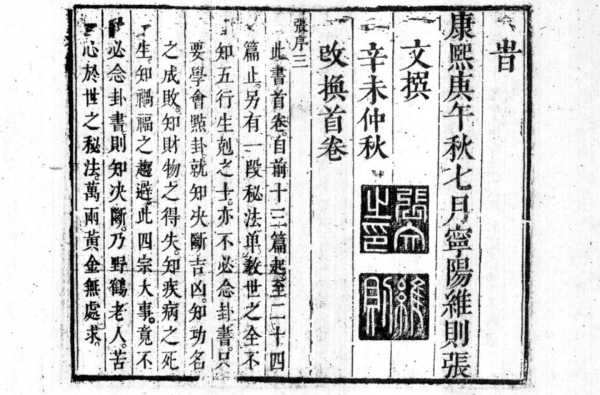 旹
康熙庚午秋七月寧陽維則張
文撰
辛未仲秋
改換首卷
張文之印
維則
張序 三
此書首卷。自前十三篇起。至二十四
篇止。另有一段秘法單教世之全不
知五行生剋之士。亦不必念卦書。只
要學會點卦就知决斷吉凶。知功名
之成敗。知財物之得失。知疾病之死
生。知禍福之趨避。此四宗大事。竟不
必念卦書則知决斷。乃野鶴老人。苦
心於世之秘法。萬兩黃金無處求。